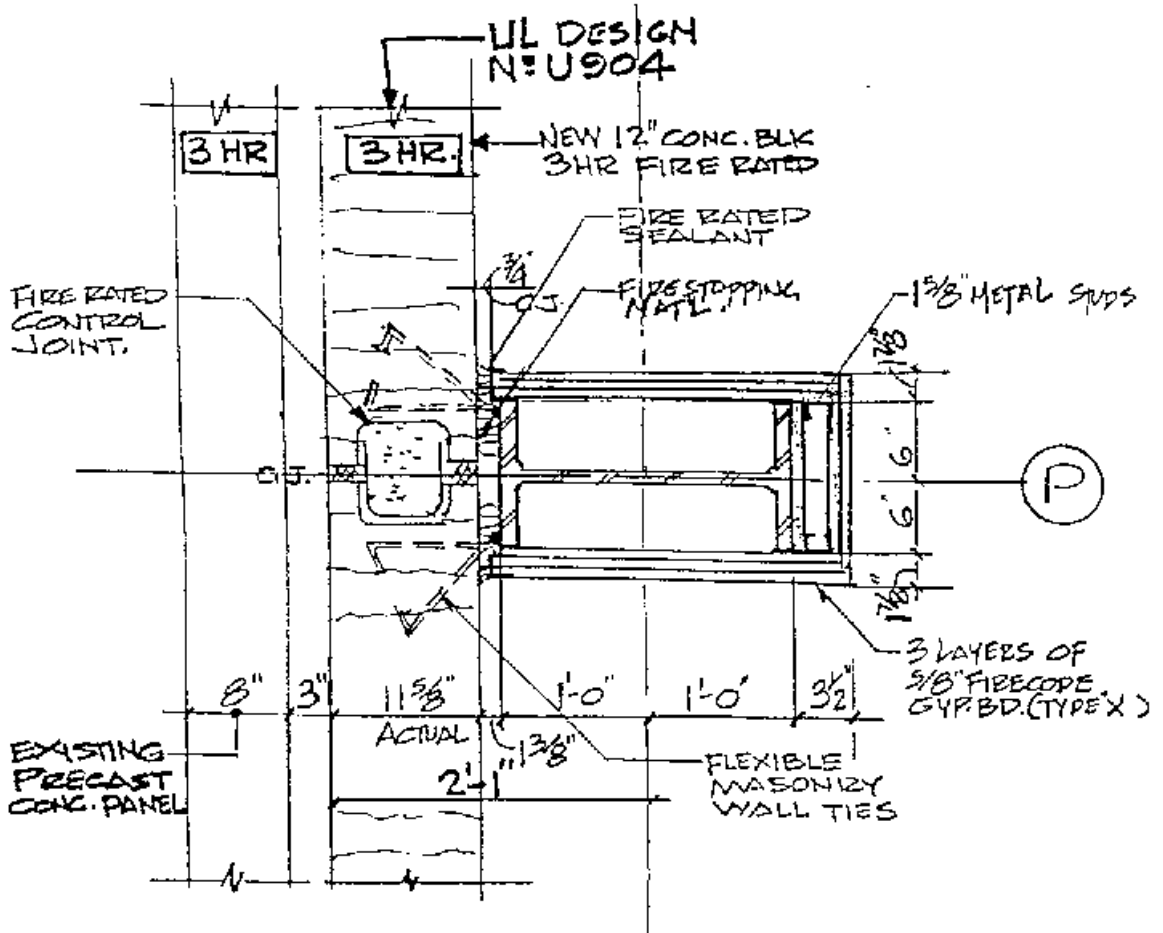 UL DESIGN
Nº U904
3 HR
3 HR.
NEW 12" CONC. BLK
3HR FIRE RATED
FIRE RATED
SEALANT
3/4"
C.J.
FIRESTOPPING
MATL.
1 5/8" METAL STUDS
FIRE RATED
CONTROL
JOINT.
1 7/8"
6"
C.J.
P
6"
1 7/8"
3 LAYERS OF
5/8" FIRECODE
GYP. BD. (TYPE "X")
8"
3"
11 5/8"
ACTUAL
1'-0"
1'-0"
3 1/2"
1 3/8"
2'-1"
EXISTING
PRECAST
CONC. PANEL
FLEXIBLE
MASONRY
WALL TIES